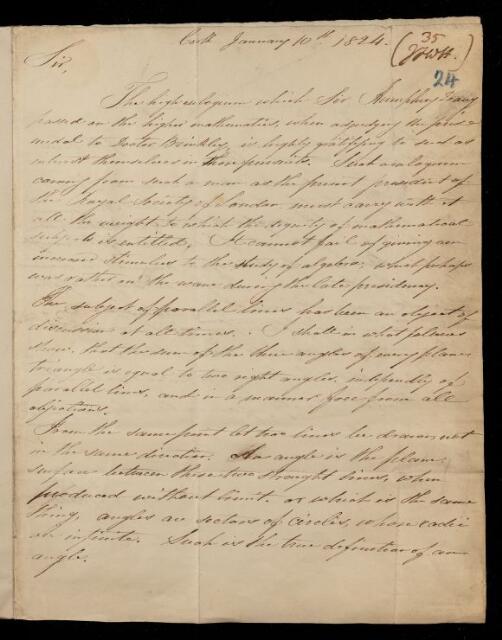 Cork January 10th 1824.
(35
JFWH.)
24
Sir,
The high eulogium which Sir Humphry Davy
passed on the higher mathematics, when adjudging the prize
medal to Doctor Brinkley, is highly gratifying to such as
interest themselves in these pursuits. Such an eulogium
coming from such a man as the present president of
the Royal Society of London must carry with it
all the weight to which the dignity of mathematical
subjects is entitled. It cannot fail of giving an
increased stimulus to the study of algebra; what perhaps
was rather on the wane during the late presidency.
The subject of parallel lines has been an object of
discussion at all times. I shall in what follows
show, that the sum of the three angles of every plane
triangle is equal to two right angles, indepently of
parallel lines, and in a manner free from all
objections.
From the same point let two lines be drawn not
in the same direction. An angle is the plane
surface between these two straight lines, when
produced without limit. or which is the same
thing, angles are sectors of circles, whose radii
are infinite. Such is the true definition of an
angle.